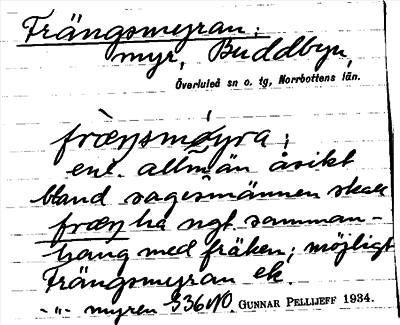 Trängsmyran;
myr, Buddbyn,
Överluleå sn o. tg, Norrbottens län.
fræŋsmøyra;
enl. allmän åsikt
bland sagesmännen skall
fræŋ ha ngt samman-
hang med fräken; möjligt
Trängsmyran ek.
-"- myren 336 NO. GUNNAR PELLIJEFF 1934.